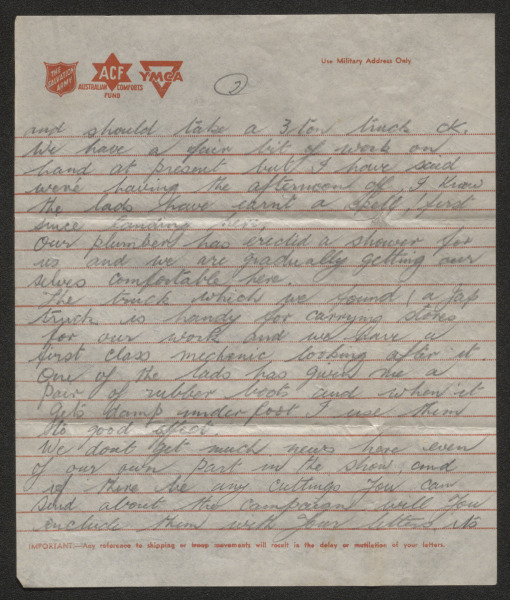 THE SALVATION ARMY
ACF
AUSTRALIAN COMFORTS FUND
YMCA
Use Military Address Only
2
and should take a 3 ton truck ok.
We have a fair bit of work on
hand at present but I have said
were having the afternoon off. I know
the lads have earn't a spell, first
since landing here.
Our plumber has erected a shower for
us and we are gradually getting our
selves comfortable here.
The truck which we found (a Jap
truck is handy for carrying stores
for our work and we have a
first class mechanic looking after it.
One of the lads has given me a
pair of rubber boots and when it
gets damp under foot I use them
to good effect.
We dont get much news here even
of our own part in the show, and
if there be any cuttings you can
send about the campaign will you
enclude them with your letters, its
IMPORTANT.—Any reference to shipping or troop movements will result in the delay or mutilation of your letters.